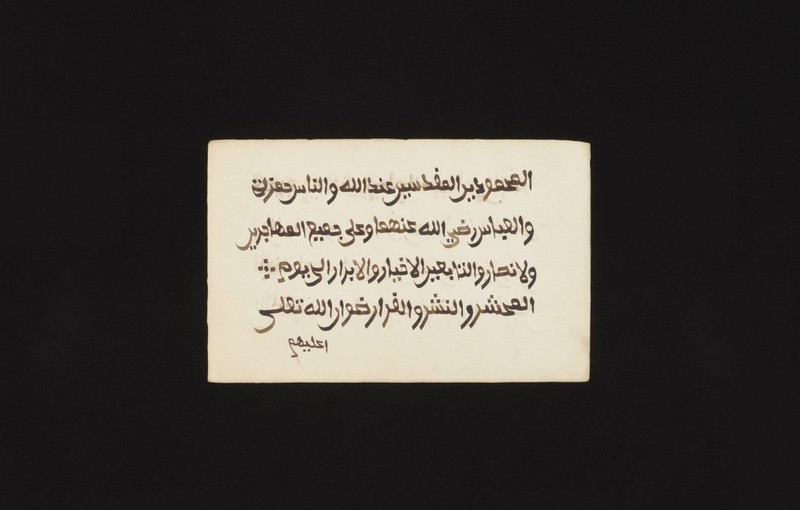 المحمودين المقدسين عند الله والناس حمزة
والعباس رضي الله عنهما وعلى جميع المهاجرين
ولانصار والتابعين الاخيار والابرار الى يوم
المحشر والنشر والقرار رضوان الله تعلى
اعليهم